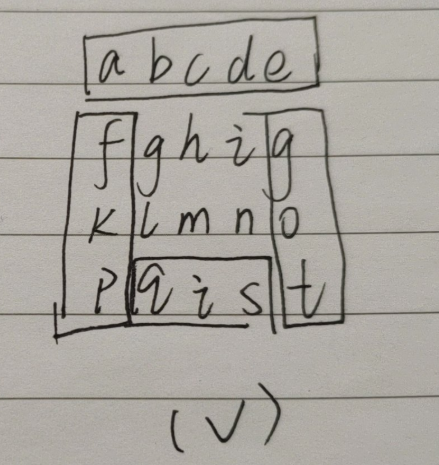 a b c d e
f g h i g
k l m n o
p q i s t
(V)